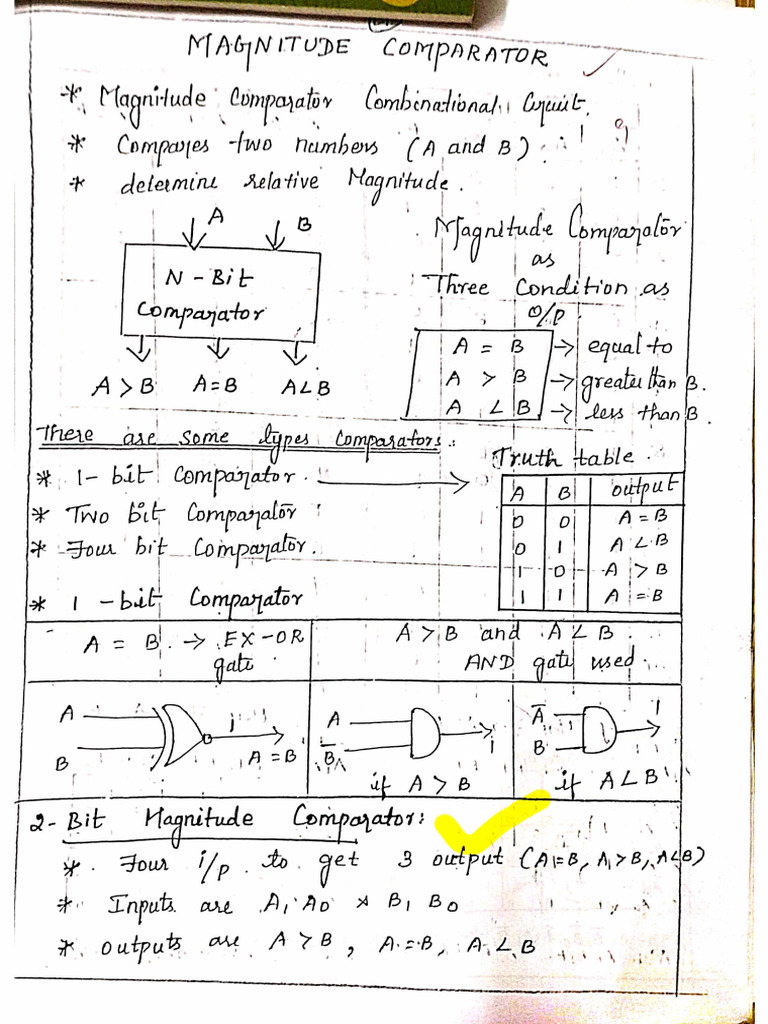 MAGNITUDE COMPARATOR
* Magnitude Comparator Combinational Circuit.
* Compares two numbers (A and B).
* determine relative Magnitude.
A B
N-Bit
Comparator
A > B A=B A<B
Magnitude Comparator
as
Three Condition as
O/P
A = B → equal to
A > B → greater than B.
A < B → less than B.
There are some types comparators:
* 1-bit Comparator. →
* Two bit Comparator
* Four bit Comparator.
Truth table.
A B output
0 0 A=B
0 1 A<B
1 0 A>B
1 1 A=B
* 1-bit Comparator
A = B. → EX-OR
gate
A>B and A<B
AND gate used.
A
B
1
A=B
A
B̅
1
if A > B
A̅
B
1
if A<B
2-Bit Magnitude Comparator:
* Four i/p to get 3 output (A=B, A>B, A<B)
* Inputs are A₁ A₀ & B₁ B₀
* outputs are A>B, A=B, A<B